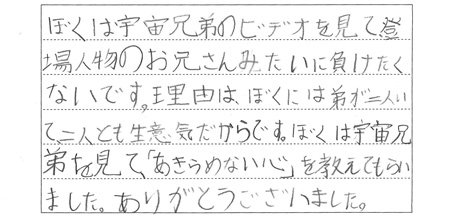 ぼくは宇宙兄弟のビデオを見て登
場人物のお兄さんみたいに負けたく
ないです。理由は、ぼくには弟が二人い
て二人とも生意気だからです。ぼくは宇宙兄
弟を見て、「あきらめない心」を教えてもらい
ました。ありがとうございました。